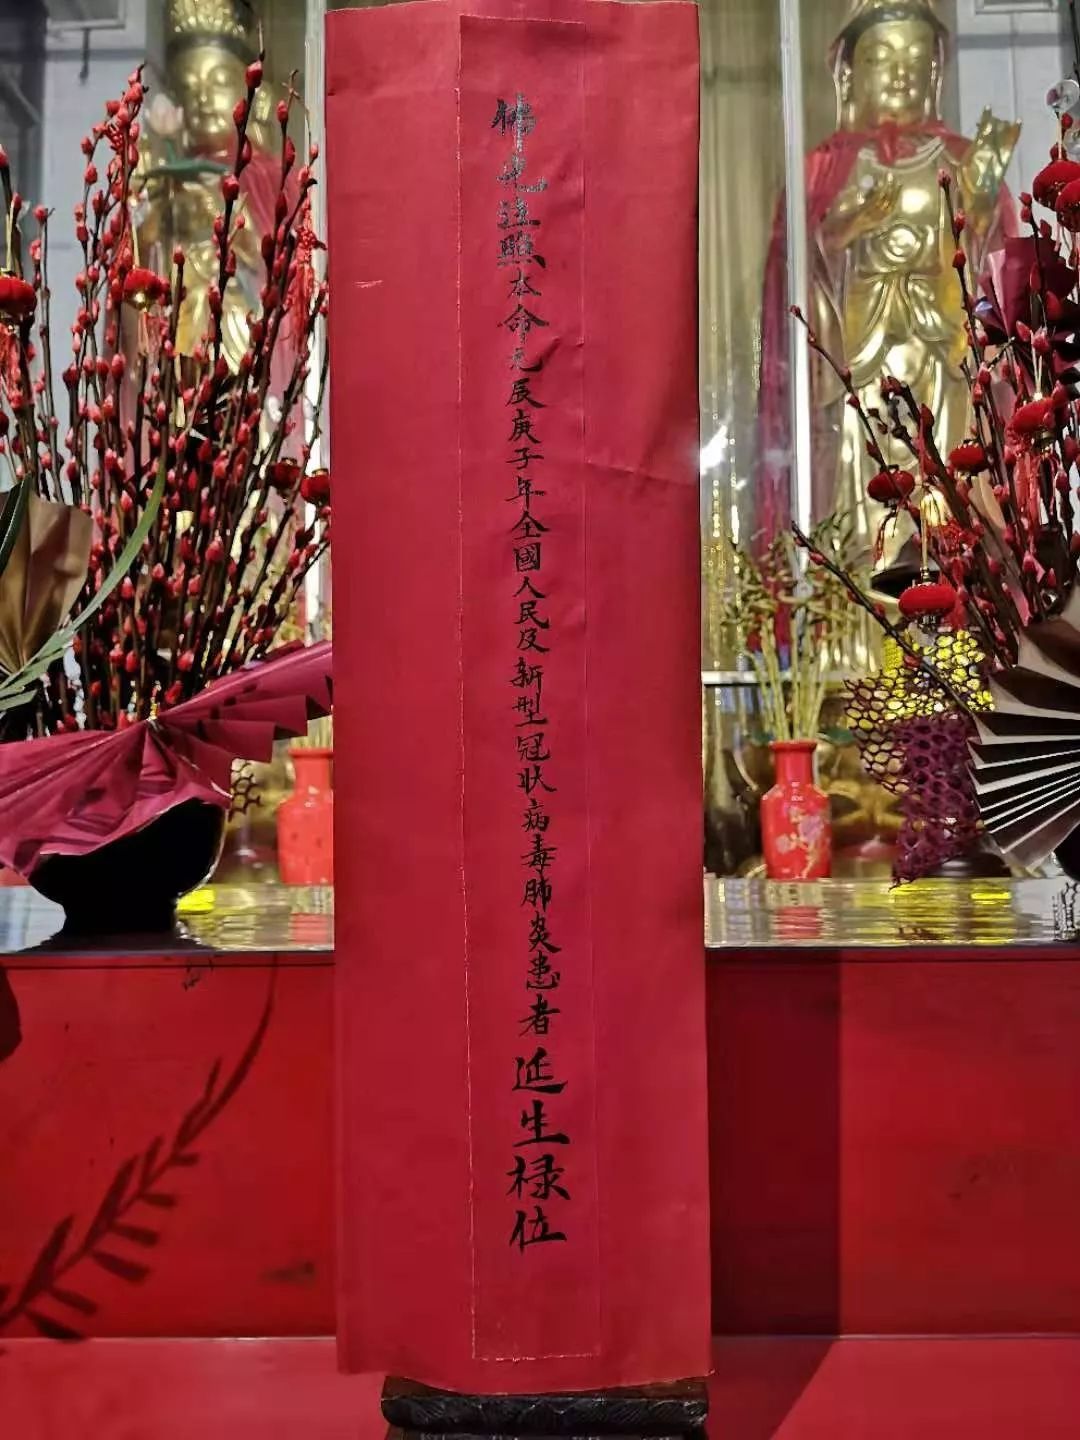 佛光注照本命元辰庚子年全國人民及新型冠狀病毒肺炎患者延生禄位